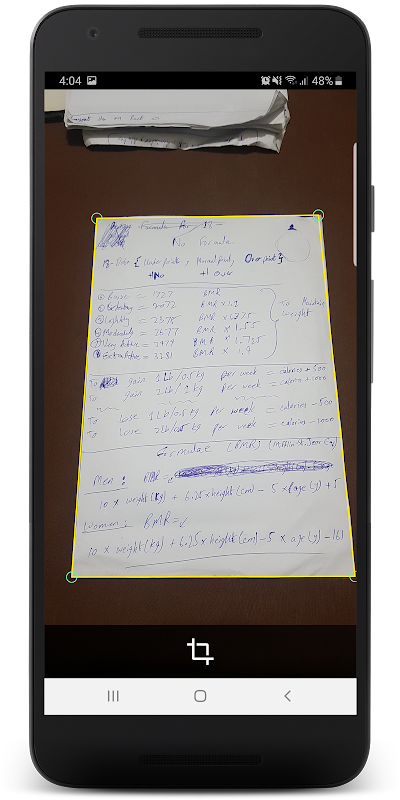 4:04 48%
Formula for
No Formula
+No +1 Over
Basic = 1727 BMR
Sedentary = 2072 BMR x 1.2
Lightly = 2375 BMR x 1.375 To Maintain
Moderately = 2677 BMR x 1.55 weight
Very Active = BMR x 1.725
Extra Active = 3281 BMR x 1.9
To gain 1 Lb/0.5 kg per week = calories + 500
To gain 2 Lb/1 kg per week = calories + 1000
To Lose 1 Lb/0.5 kg per week = calories - 500
To Lose 2 Lb/ kg per week = calories - 1000
Formulae (BMR)
Men: BMR =
10 x weight (kg) + 6.25 x height (cm) - 5 x age (y) + 5
Women: BMR =
10 x weight (kg) + 6.25 x height (cm) - 5 x age (y) - 161